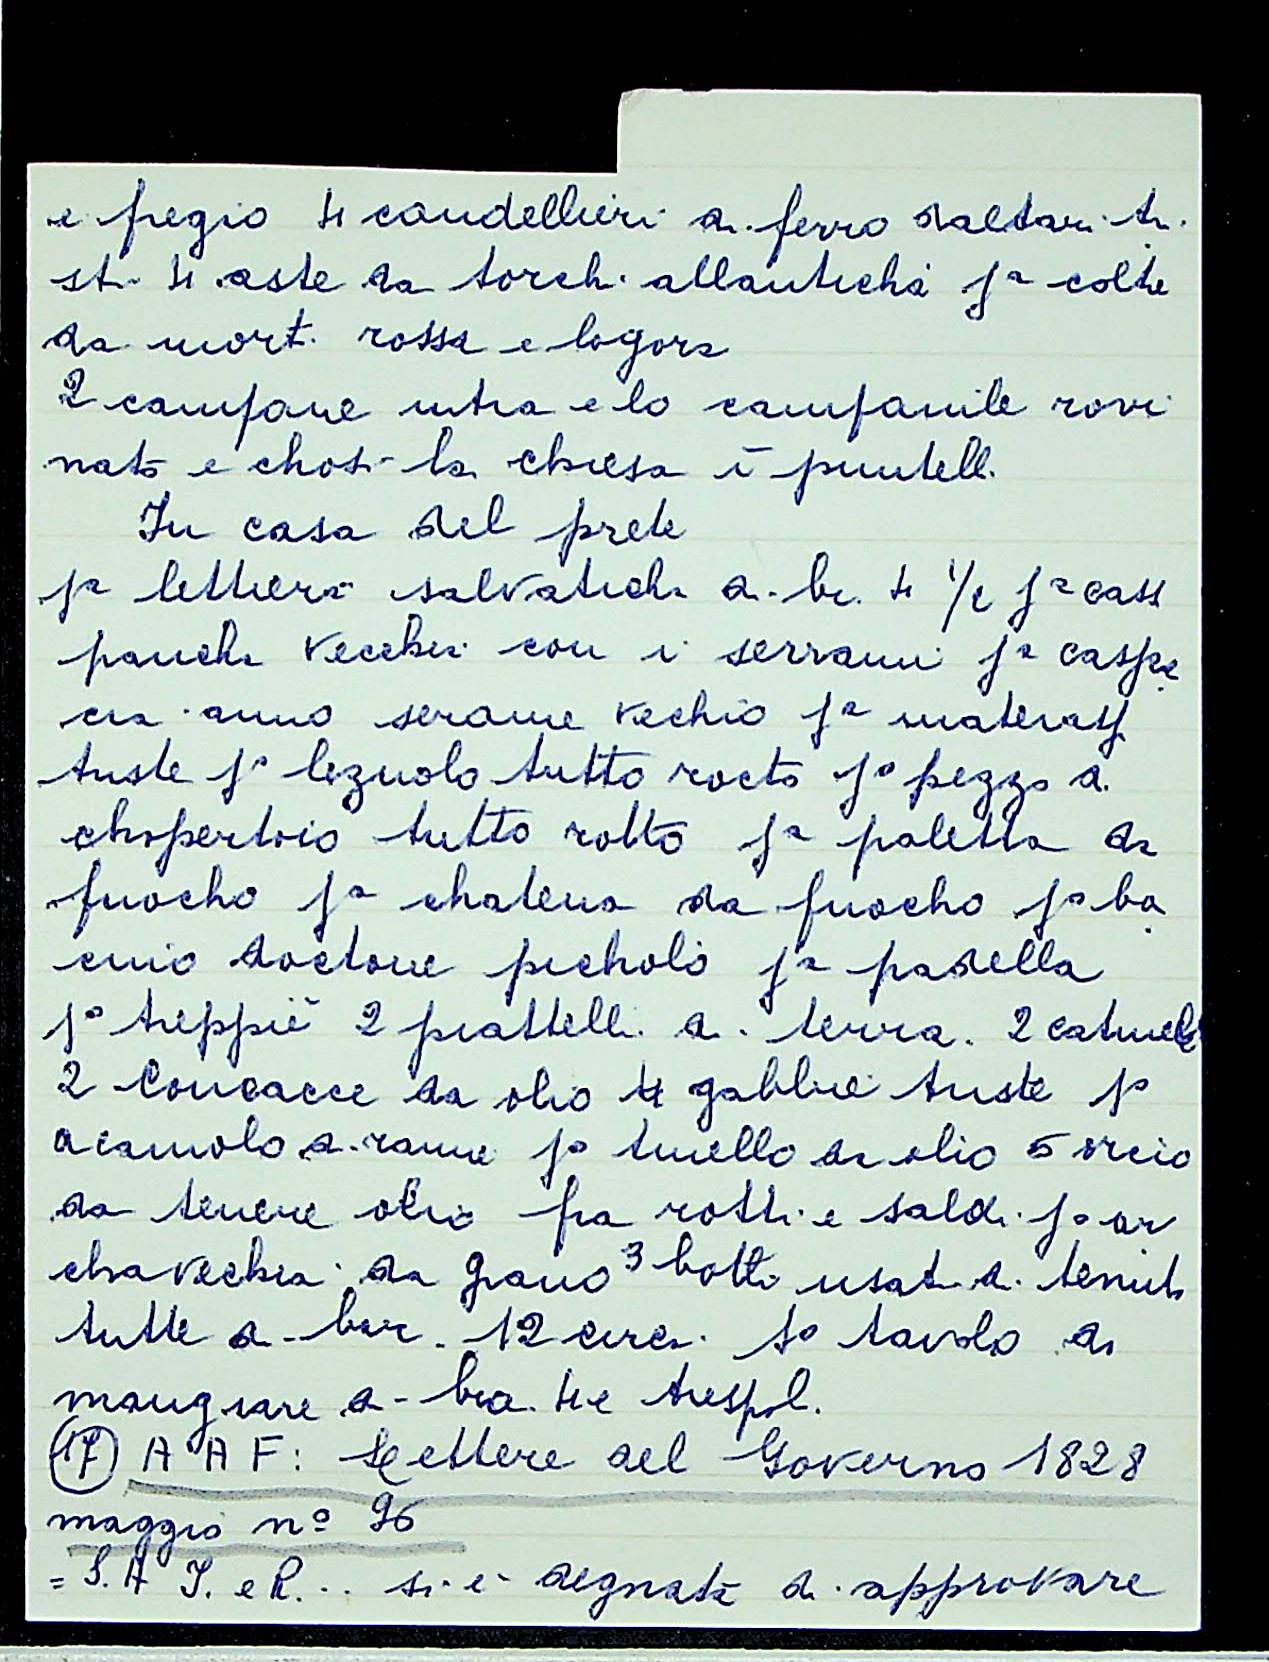 e pegio 4 candellieri di ferro daltari tri
sti 4 aste da torchi allanticha 1ª coltre
da morti rossa e logora
2 campane intra e lo campanile rovi
nato e chosi la chiesa ī puntelli
In casa del prete
1ª lettiera salvaticha di br. 4 1/2 1ª cass
pancha vecchia con i serrami 1ª caspe
cia anno serame vechio 1ª materass
triste 1º lezuolo tutto rocto 1º pezzo di
chopertoio tutto rotto 1ª paletta da
fuocho 1ª chatena da fuocho 1º ba
cino doctone picholo 1ª padella
1º treppiē 2 piattelli di terra. 2 catinelle
2 Concacce da olio 4 gabbie triste 1º
di rame 1º tinello da olio 5 orcio
da tenere olio fra rotti e saldi 1ª ar
cha vechia da grano 3 botti usati di tenuta
tutte di bar. 12 circa 1º tavolo da
mangiare di bra. 4 e trespoli.
(17) A A F: Lettere del Governo 1828
maggio nº 96
= S. A I. e R... si è degnata di approvare